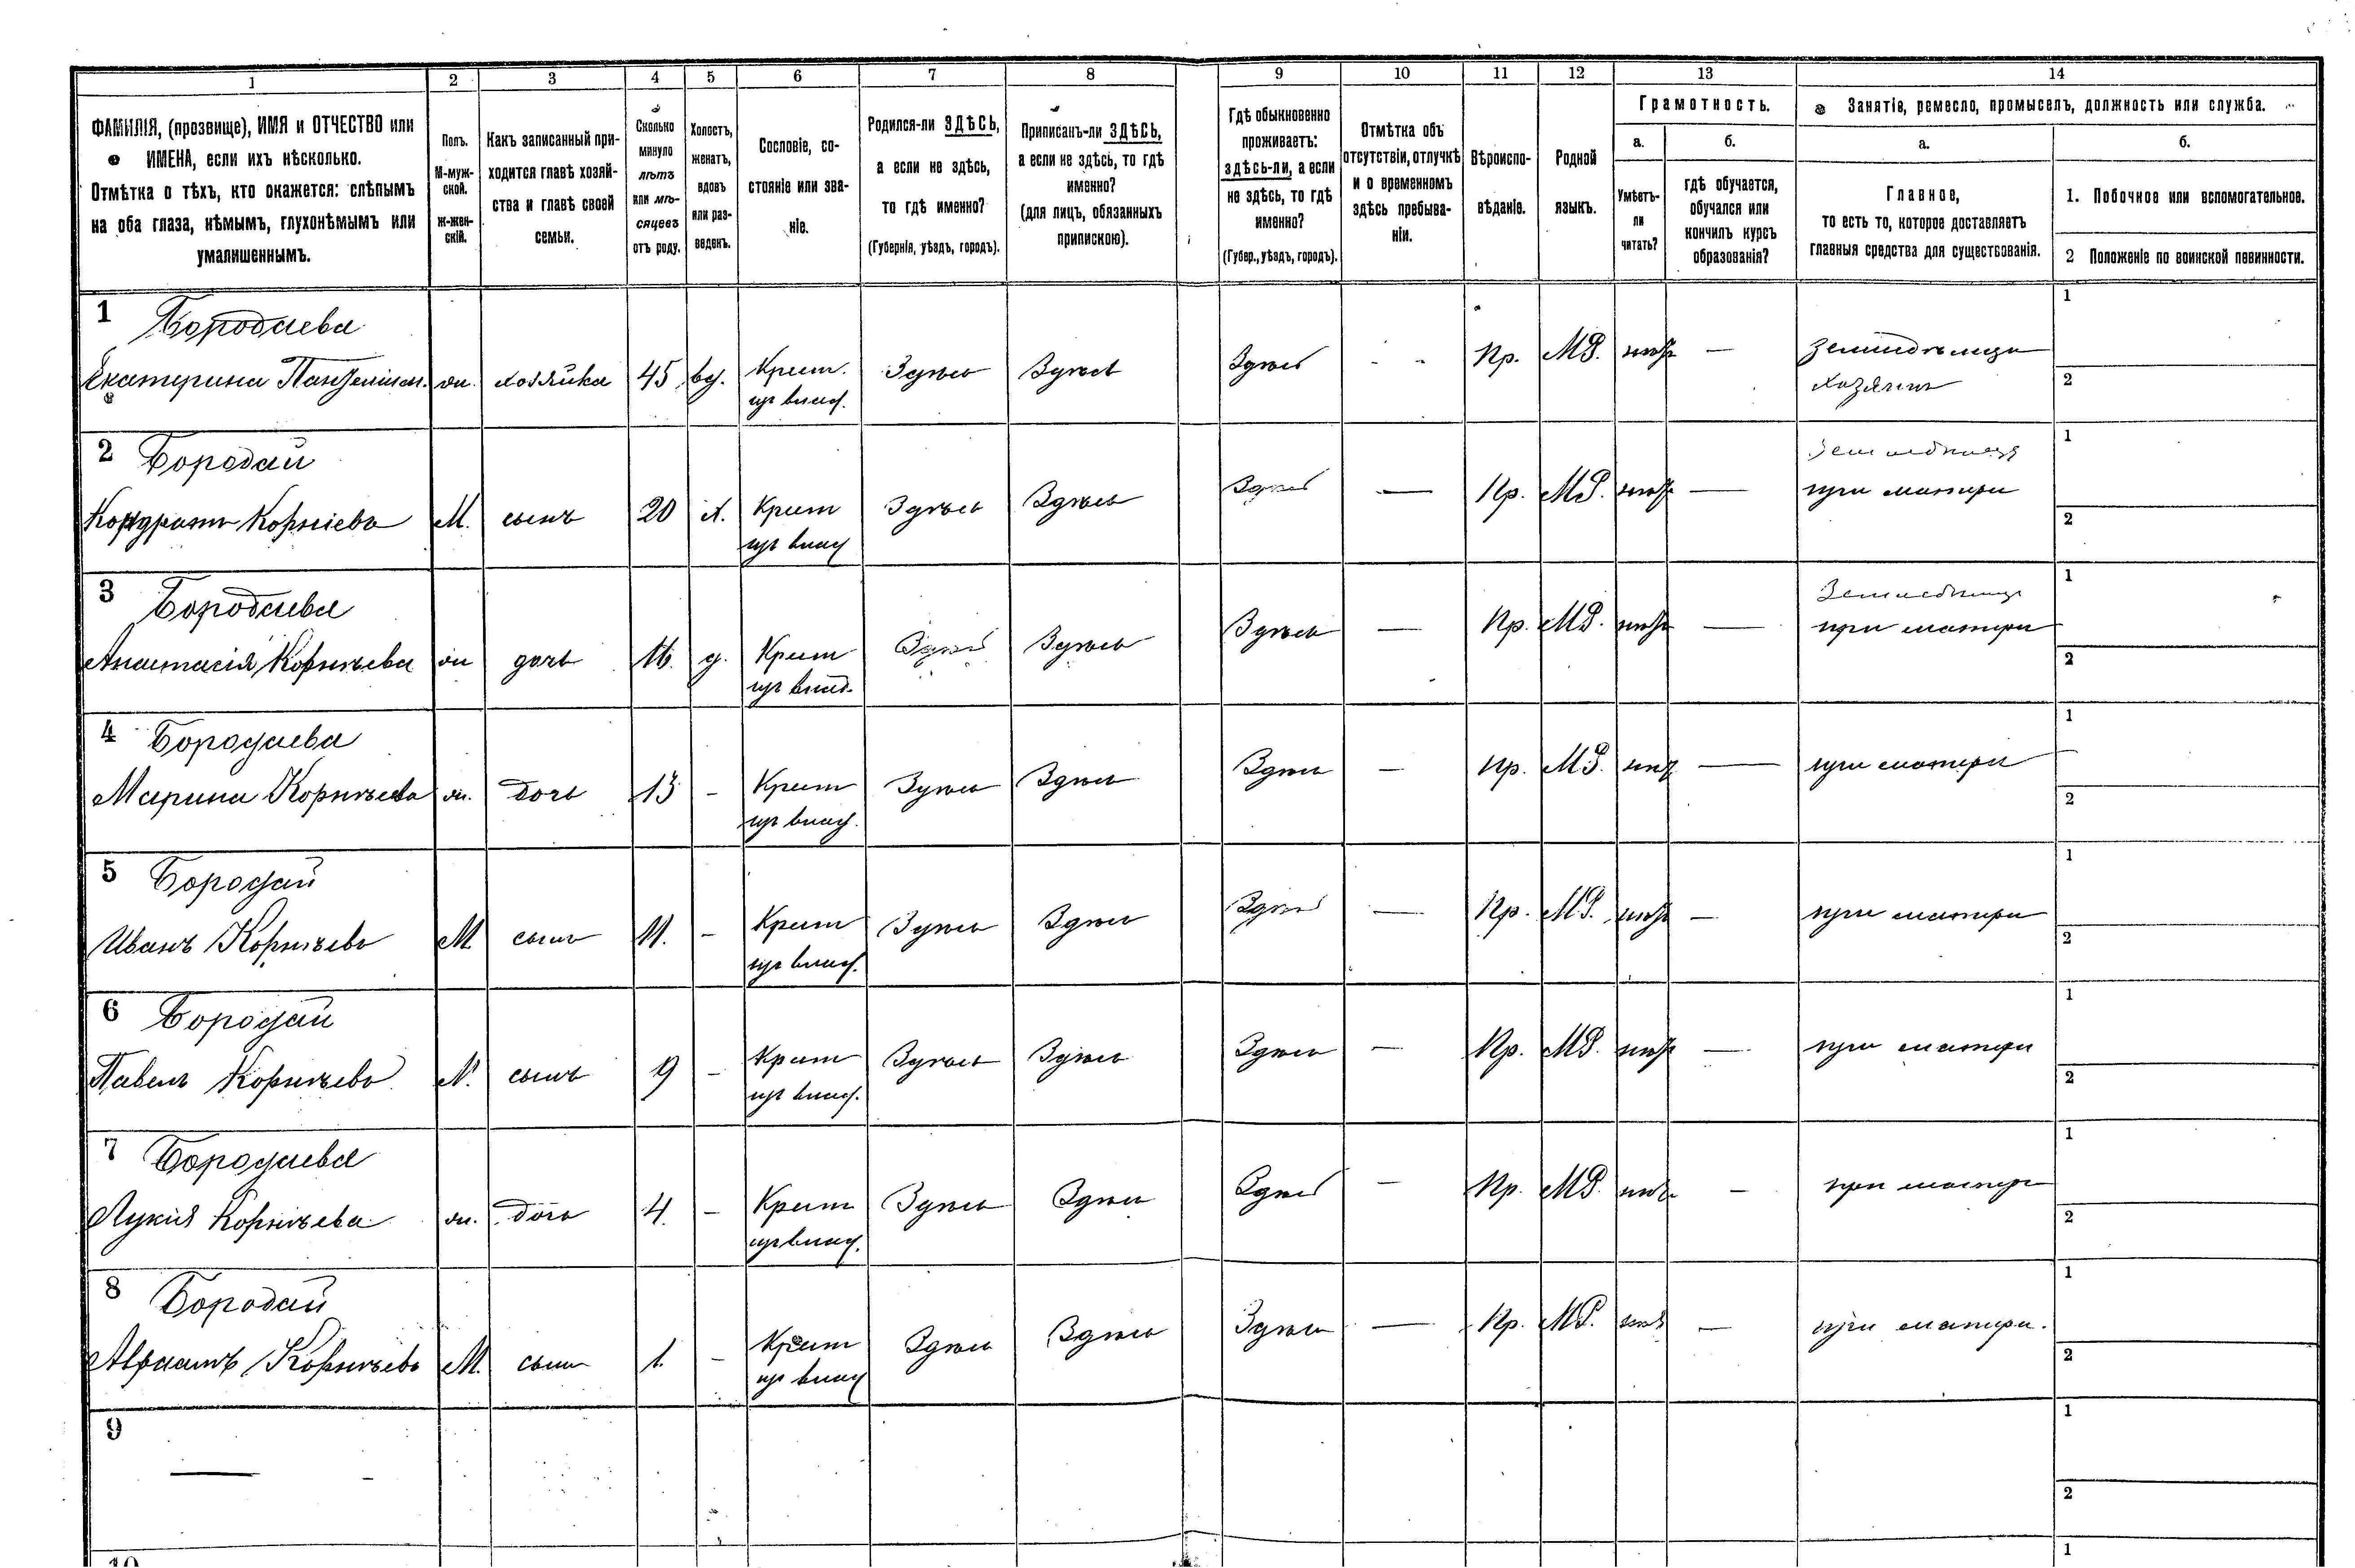 1 2 3 4 5 6 7 8 9 10 11 12 13 14
ФАМИЛІЯ, (прозвище), ИМЯ и ОТЧЕСТВО или
ИМЕНА, если ихъ нѣсколько.
Отмѣтка о тѣхъ, кто окажется: слѣпымъ
на оба глаза, нѣмымъ, глухонѣмымъ или
умалишеннымъ.
Полъ.
М-муж-
ской.
Ж-жен-
скій.
Какъ записанный при-
ходится главѣ хозяй-
ства и главѣ своей
семьи.
Сколько
минуло
лѣтъ
или мѣ-
сяцевъ
отъ роду.
Холостъ,
женатъ,
вдовъ
или раз-
веденъ.
Сословіе, со-
стояніе или зва-
ніе.
Родился-ли ЗДѢСЬ,
а если не здѣсь,
то гдѣ именно?
(Губернія, уѣздъ, городъ).
Приписанъ-ли ЗДѢСЬ,
а если не здѣсь, то гдѣ
именно?
(для лицъ, обязанныхъ
припискою).
Гдѣ обыкновенно
проживаетъ:
здѣсь-ли, а если
не здѣсь, то гдѣ
именно?
(Губер., уѣздъ, городъ).
Отмѣтка объ
отсутствіи, отлучкѣ
и о временномъ
здѣсь пребыва-
ніи.
Вѣроиспо-
вѣданіе.
Родной
языкъ.
Грамотность.
а.
Умѣетъ-
ли
читать?
б.
гдѣ обучается,
обучался или
кончилъ курсъ
образованія?
Занятіе, ремесло, промыселъ, должность или служба.
а.
Главное,
то есть то, которое доставляетъ
главныя средства для существованія.
б.
1. Побочное или вспомогательное.
2 Положеніе по воинской повинности.
1 Бородаева 1
Екатерина ж. хозяйка 45 вд. Крест. Здѣсь Здѣсь Здѣсь - - Пр. МР. нѣтъ — 2
из влад. хозяинъ
2 Бородай 1
Кондратъ Корніевъ М. сынъ 20 х. Крест Здѣсь Здѣсь Здѣсь — Пр. МР. нѣтъ — при матери
из влад 2
3 Бородаева 1
Анастасія Корнѣева ж дочь 16. д. Крест Здѣсь Здѣсь Здѣсь — Пр. МР. нѣтъ — при матери
из влад. 2
4 Бородаева 1
Марина Корнѣева ж. дочь 13 - Крест Здѣсь Здѣсь Здѣсь — Пр. МР. нѣтъ — при матери
из влад. 2
5 Бородай 1
Иванъ Корнѣевъ М сынъ 11. - Крест Здѣсь Здѣсь Здѣсь — Пр. МР. нѣтъ — при матери
из влад. 2
6 Бородай 1
Павелъ Корнѣевъ М. сынъ 9 - Крест Здѣсь Здѣсь Здѣсь — Пр. МР. нѣтъ — при матери
из влад. 2
7 Бородаева 1
Лукія Корнѣева ж. дочь 4. - Крест Здѣсь Здѣсь Здѣсь — Пр. МР. нѣтъ — при матери
из влад. 2
8 Бородай 1
Авраамъ Корнѣевъ М. сынъ 1. - Крест Здѣсь Здѣсь Здѣсь — Пр. МР. нѣтъ — при матери.
из влад 2
9 1
— - 2
10 1